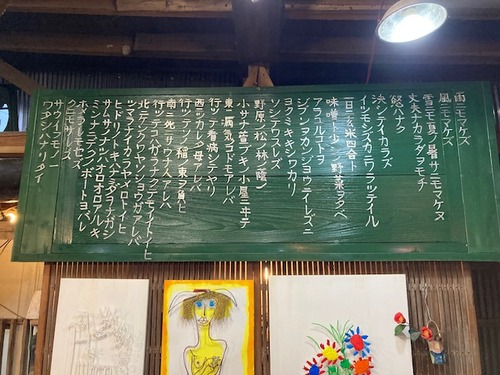 雨ニモマケズ
風ニモマケズ
雪ニモ夏ノ暑サニモマケヌ
丈夫ナカラダヲモチ
慾ハナク
決シテイカラズ
イツモシズカニワラッテイル
一日ニ玄米四合ト
味噌ト少シノ野菜ヲタベ
アラユルコトヲ
ジブンヲカンジョウニイレズニ
ヨクミキキシワカリ
ソシテワスレズ
野原ノ松ノ林ノ蔭ノ
小サナ萱ブキノ小屋ニヰテ
東ニ病気ノコドモアレバ
行ッテ看病シテヤリ
西ニツカレタ母アレバ
行ッテソノ稲ノ束ヲ負ヒ
南ニ死ニソウナ人アレバ
行ッテコワガラナクテモイイトイヒ
北ニケンクヮヤソショウガアレバ
ツマラナイカラヤメロトイヒ
ヒドリノトキハナミダヲナガシ
サムサノナツハオロオロアルキ
ミンナニデクノボートヨバレ
ホメラレモセズ
クニモサレズ
サウイフモノニ
ワタシハナリタイ